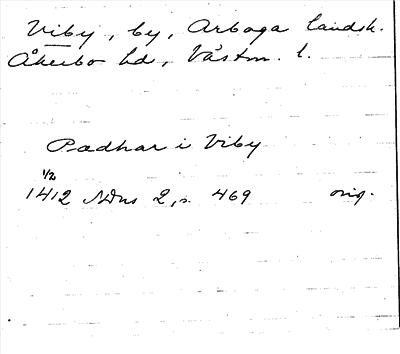 Viby, by, Arboga landsk.
Åkerbo hd, Västm. l.
Padhar i Viby
1/2
1412 SDns 2, s. 469 orig.